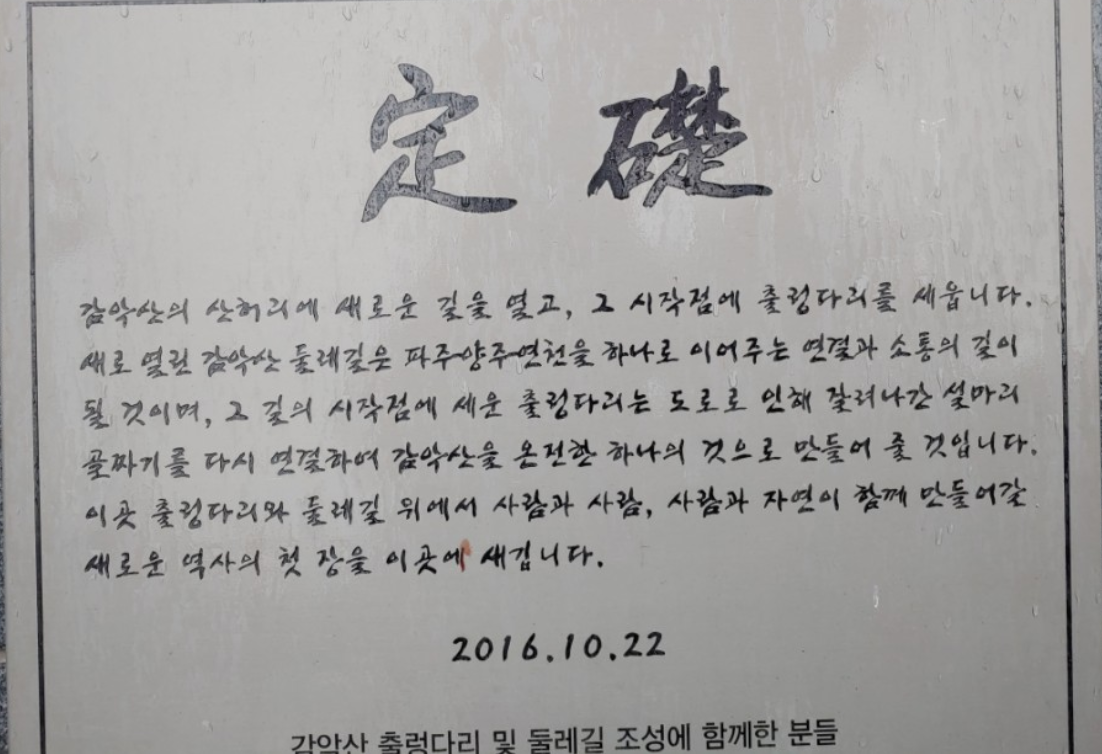 定 礎
감악산의 산허리에 새로운 길을 열고, 그 시작점에 출렁다리를 세웁니다.
새로 열린 감악산 둘레길은 파주·양주·연천을 하나로 이어주는 연결과 소통의 길이
될 것이며, 그 길의 시작점에 세운 출렁다리는 도로로 인해 잘려나간 설마리
골짜기를 다시 연결하여 감악산을 온전한 하나의 것으로 만들어 줄 것입니다.
이곳 출렁다리와 둘레길 위에서 사람과 사람, 사람과 자연이 함께 만들어갈
새로운 역사의 첫 장을 이곳에 새깁니다.
2016.10.22
감악산 출렁다리 및 둘레길 조성에 함께한 분들